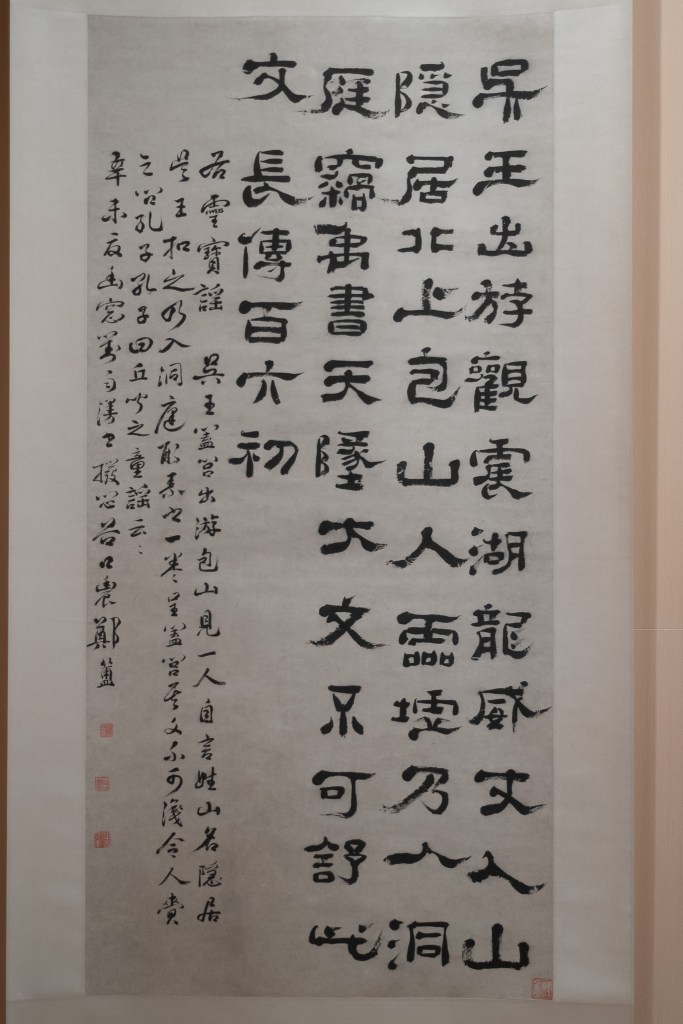 吳王出游觀震湖龍威丈人山
隱居北上包山人靈墟乃入洞
庭竊禹書天墜大文不可舒此
文長傳百六初
右靈寶謠 吳王盖呂出游包山見一人自言姓山名隱居
吳王扣之乃入洞庭取素書一卷呈盖呂其文不可識令人賫
之問孔子孔子曰丘聞之童謠云〻
辛未夏幽窓對雨漫書 谷口農鄭簠